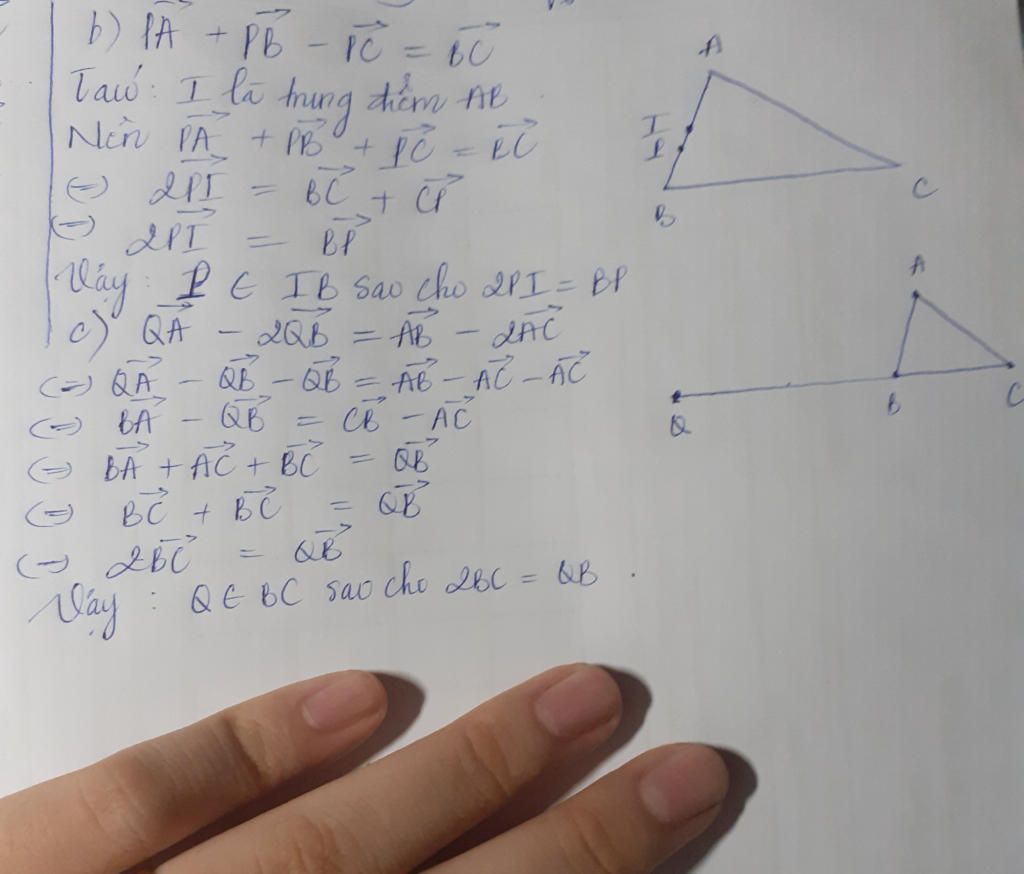 b) PA + PB - PC = BC
Tacó: I là trung điểm AB
Nên PA + PB + PC = BC
(=) 2PI = BC + CP
(=) 2PI = BP
Vậy: P ∈ IB sao cho 2PI = BP
c) QA - 2QB = AB - 2AC
(=) QA - QB - QB = AB - AC - AC
(=) BA - QB = CB - AC
(=) BA + AC + BC = QB
(=) BC + BC = QB
(=) 2BC = QB
Vậy: Q ∈ BC sao cho 2BC = QB.
A
I
P
B
C
A
Q
B
C